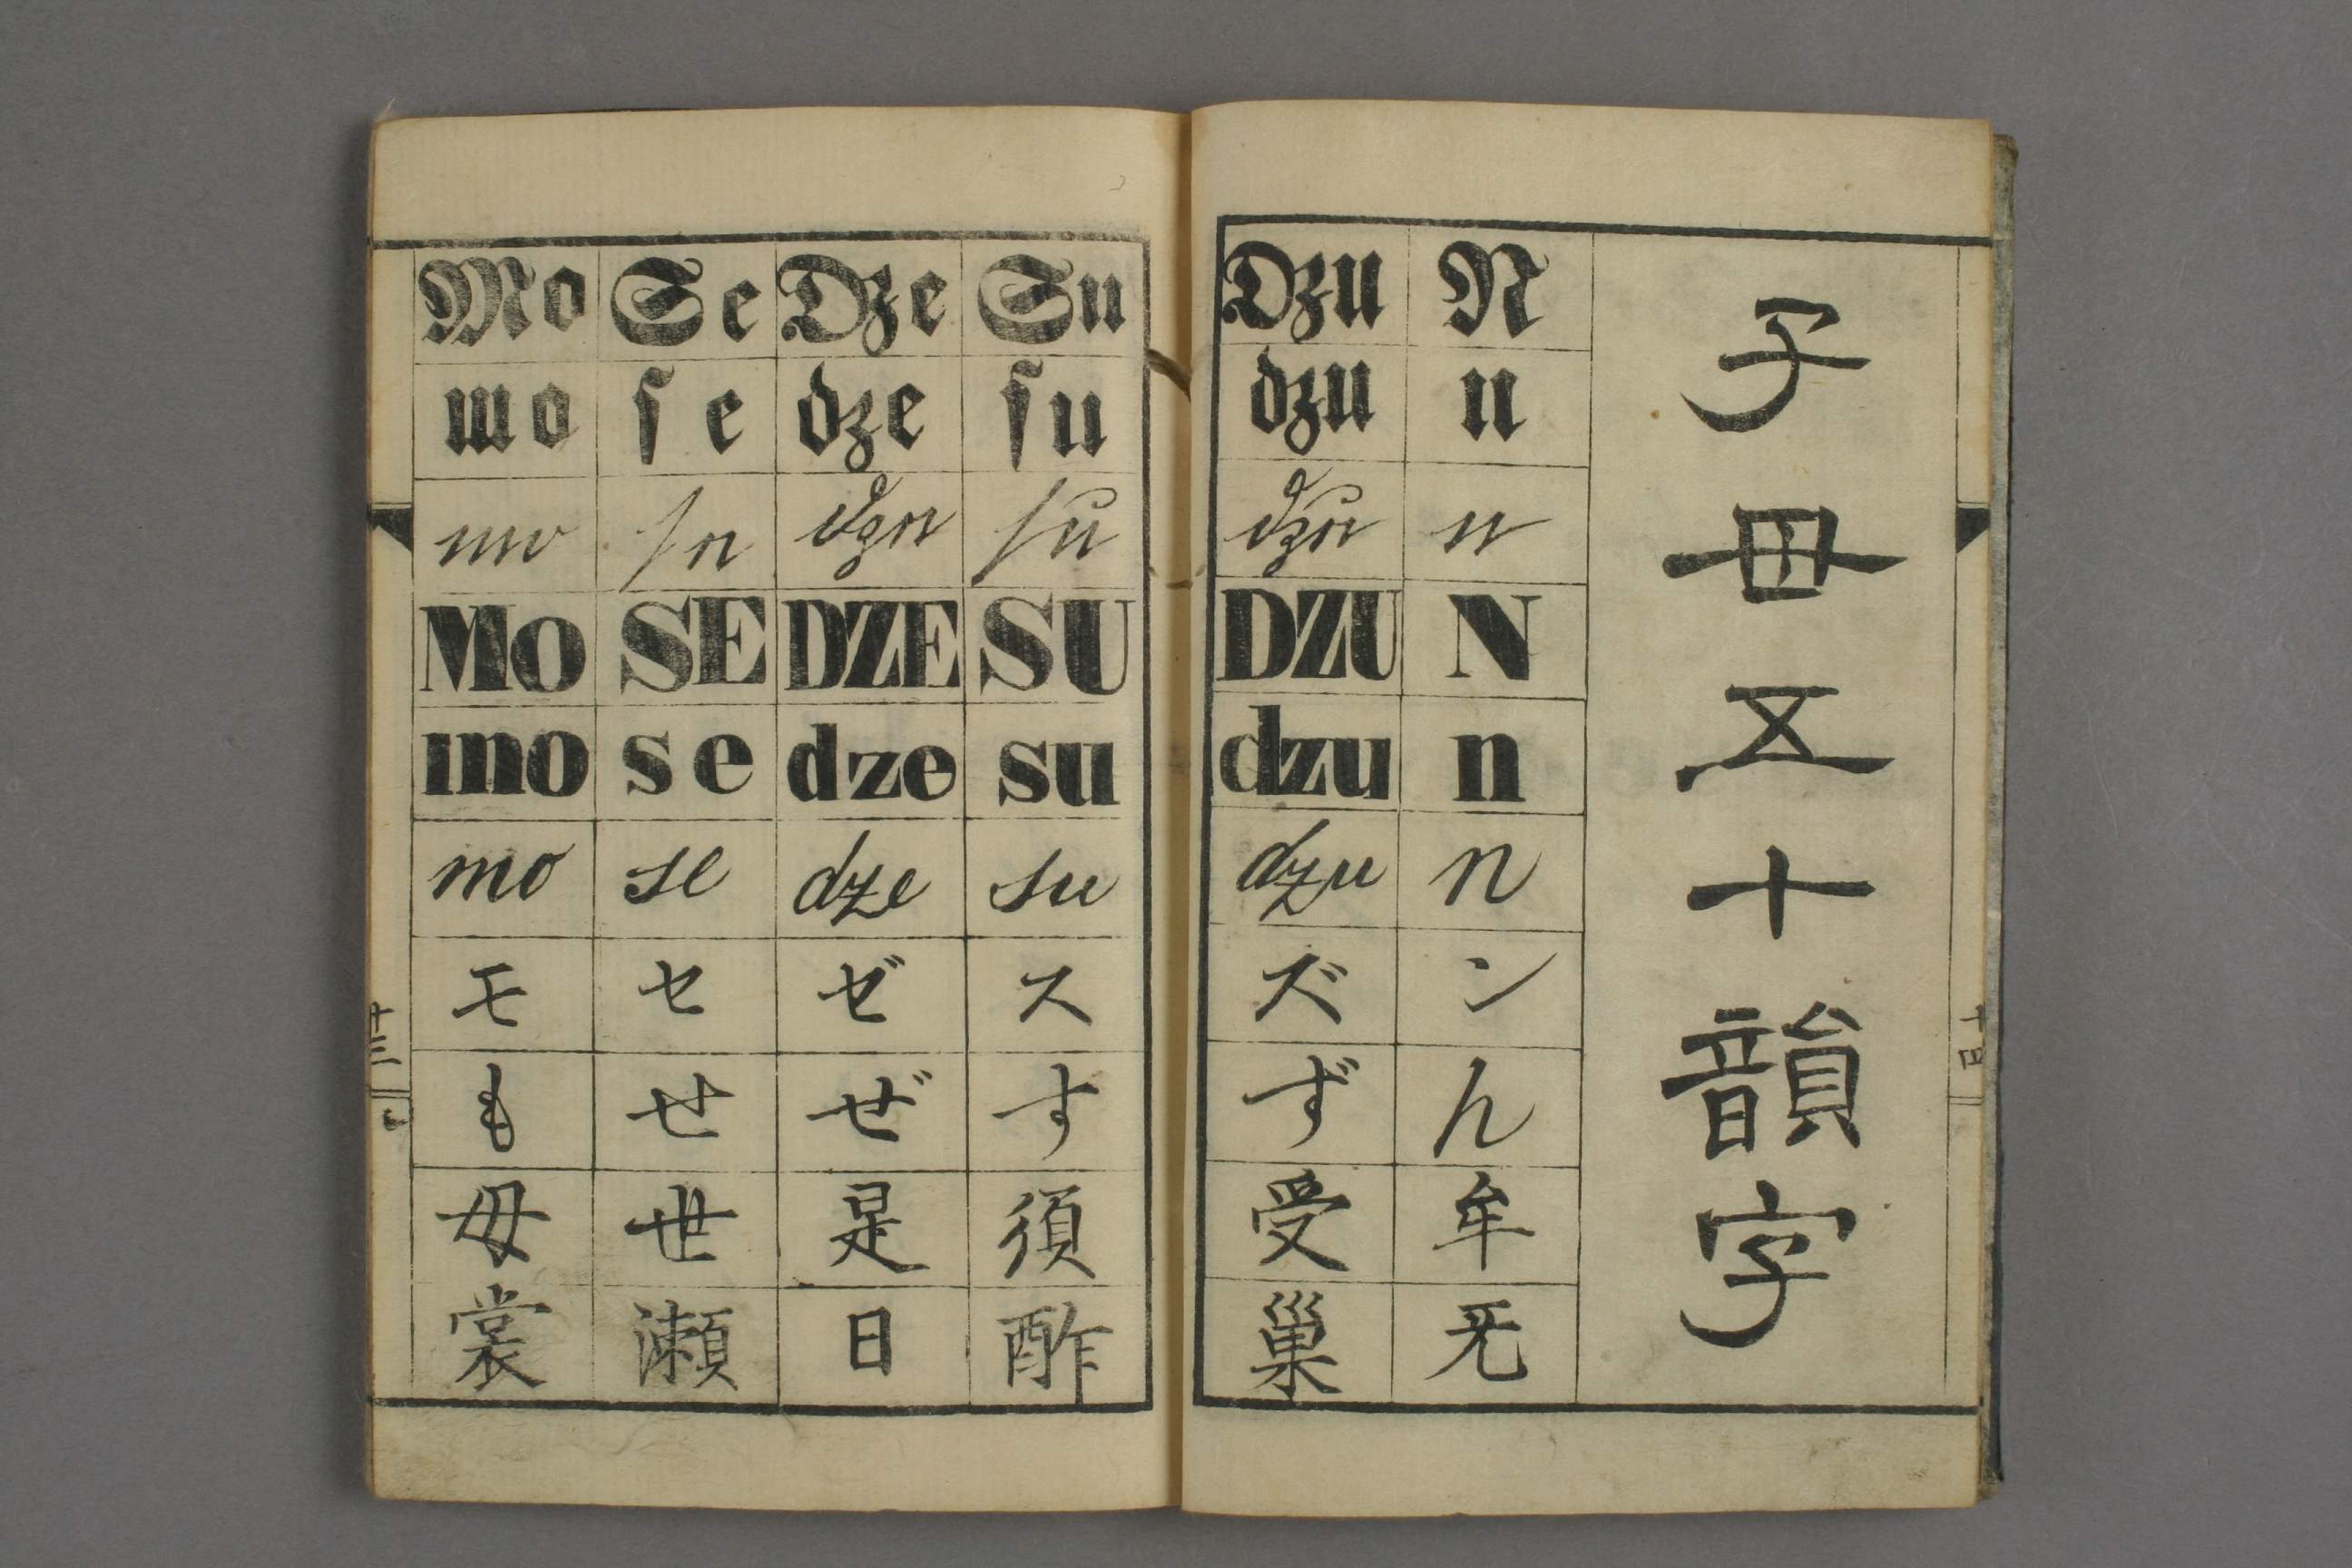 Mo Se Dze Su
mo ſe dze ſu
mo ſe dze ſu
MO SE DZE SU
mo se dze su
mo se dze su
モ セ ゼ ス
も せ ぜ す
毋 世 是 須
裳 瀬 日 酢
十三
Dzu N
dzu n
dzu n
DZU N
dzu n
dzu n
ズ ン
ず ん
受 牟
巢 旡
子毋五十韻字